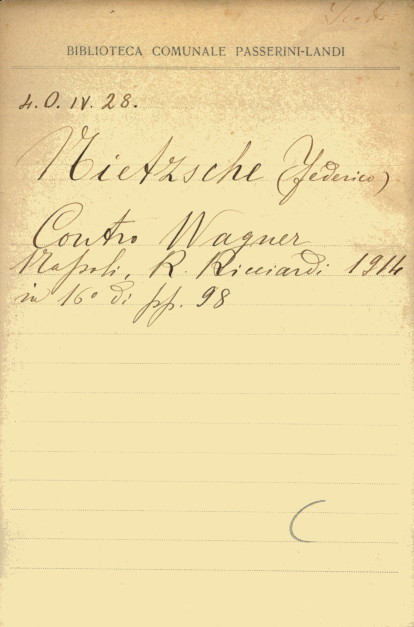 BIBLIOTECA COMUNALE PASSERINI-LANDI
4. O. IV. 28.
Nietzsche (Federico)
Contro Wagner
Napoli, R. Ricciardi 1914
in 16° di pp. 98